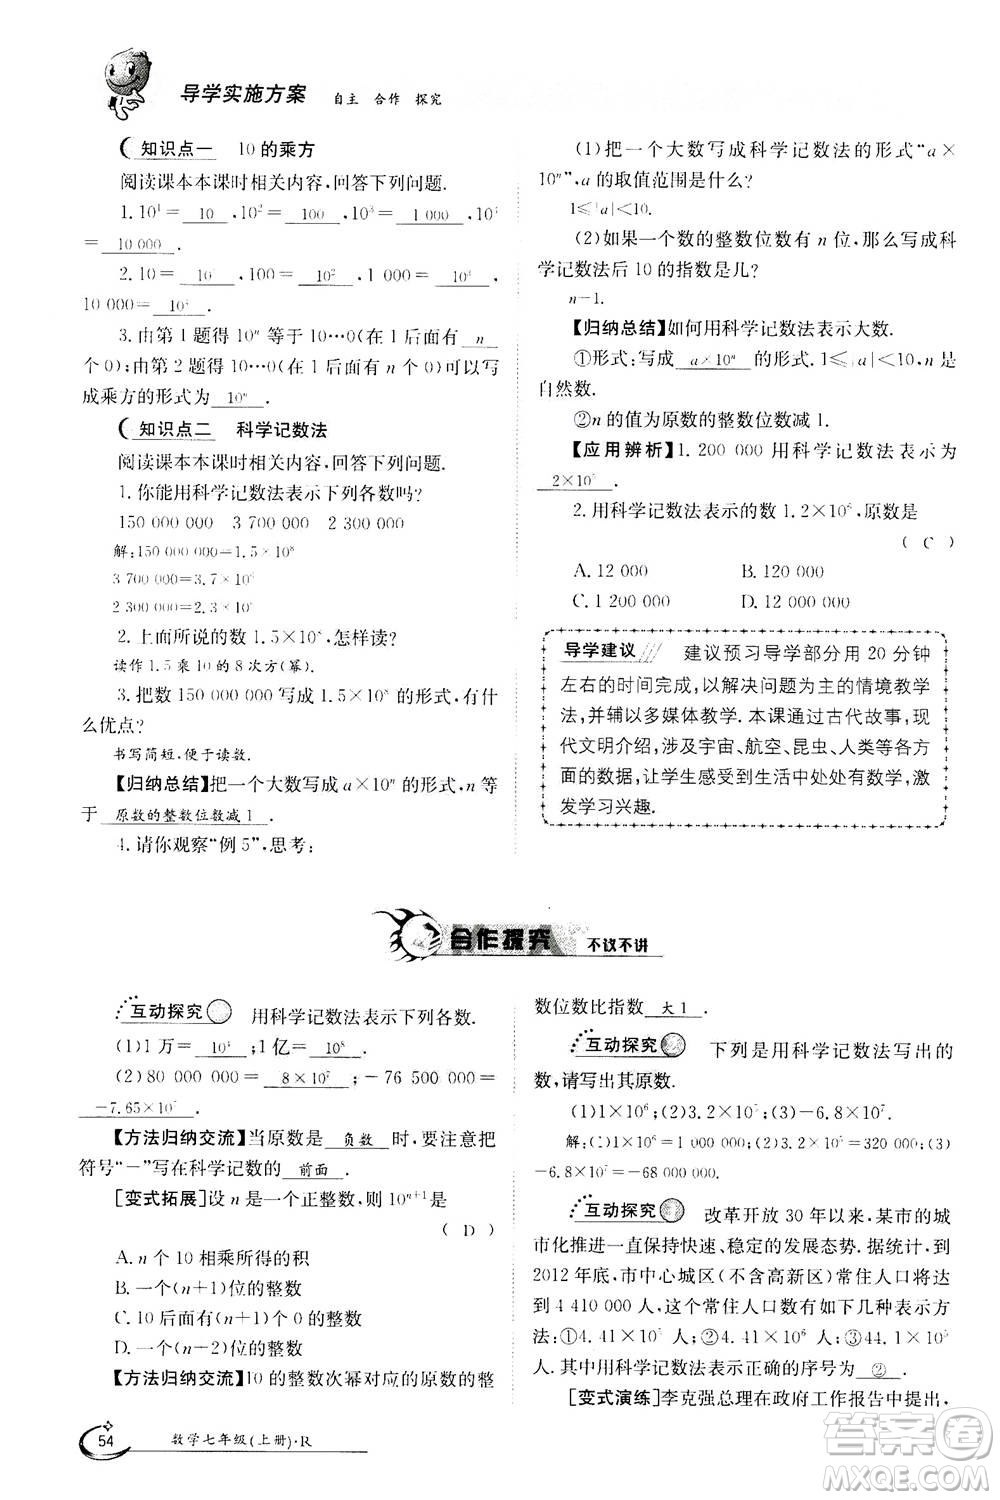 导学实施方案 自主 合作 探究
知识点一 10的乘方
阅读课本本课时相关内容,回答下列问题.
1. 10¹= 10 ,10²= 100 ,10³= 1 000 ,10
= 10 000 .
2. 10= 10 ,100= 10² ,1 000= 10 ,
10 000= 10 .
3. 由第1题得10ⁿ等于10…0(在1后面有 n
个0);由第2题得10…0(在1后面有n个0)可以写
成乘方的形式为 10ⁿ .
知识点二 科学记数法
阅读课本本课时相关内容,回答下列问题.
1. 你能用科学记数法表示下列各数吗?
150 000 000 3 700 000 2 300 000
解:150 000 000=1.5×10⁸
3 700 000=3.7×10
2 300 000=2.3×10
2. 上面所说的数1.5×10⁸,怎样读?
读作1.5乘10的8次方(幂).
3. 把数150 000 000写成1.5×10⁸的形式,有什
么优点?
书写简短,便于读数.
【归纳总结】把一个大数写成a×10ⁿ的形式,n等
于 原数的整数位数减1 .
4. 请你观察“例5”,思考:
(1)把一个大数写成科学记数法的形式“a×
10ⁿ”,a的取值范围是什么?
1≤|a|<10.
(2)如果一个数的整数位数有n位,那么写成科
学记数法后10的指数是几?
n-1.
【归纳总结】如何用科学记数法表示大数.
①形式:写成 a×10ⁿ 的形式. 1≤|a|<10,n是
自然数.
②n的值为原数的整数位数减1.
【应用辨析】1. 200 000用科学记数法表示为
2×10⁵ .
2. 用科学记数法表示的数1.2×10⁶,原数是
( C )
A. 12 000 B. 120 000
C. 1 200 000 D. 12 000 000
导学建议 建议预习导学部分用20分钟
左右的时间完成,以解决问题为主的情境教学
法,并辅以多媒体教学. 本课通过古代故事,现
代文明介绍,涉及宇宙、航空、昆虫、人类等各方
面的数据,让学生感受到生活中处处有数学,激
发学习兴趣.
合作探究 不议不讲
互动探究 用科学记数法表示下列各数.
(1)1万= 10 ,1亿= 10⁸ .
(2)80 000 000= 8×10⁷ ,-76 500 000=
-7.65×10 .
【方法归纳交流】当原数是 负数 时,要注意把
符号“-”写在科学记数的 前面 .
[变式拓展]设n是一个正整数,则10ⁿ⁺¹是
( D )
A. n个10相乘所得的积
B. 一个(n+1)位的整数
C. 10后面有(n+1)个0的整数
D. 一个(n+2)位的整数
【方法归纳交流】10的整数次幂对应的原数的整
数位数比指数 大1 .
互动探究 下列是用科学记数法写出的
数,请写出其原数.
(1)1×10⁶;(2)3.2×10⁵;(3)-6.8×10⁷.
解:(1)1×10⁶=1 000 000;(2)3.2×10⁵=320 000;(3)
-6.8×10⁷=-68 000 000.
互动探究 改革开放30年以来,某市的城
市化推进一直保持快速、稳定的发展态势. 据统计,到
2012年底,市中心城区(不含高新区)常住人口将达
到4 410 000人,这个常住人口数有如下几种表示方
法:①4.41×10⁵人,②4.41×10⁶人,③44.1×10⁵
人. 其中用科学记数法表示正确的序号为 ② .
[变式演练]李克强总理在政府工作报告中提出,
54 数学七年级(上册)·R
答案圈
MXQE.COM